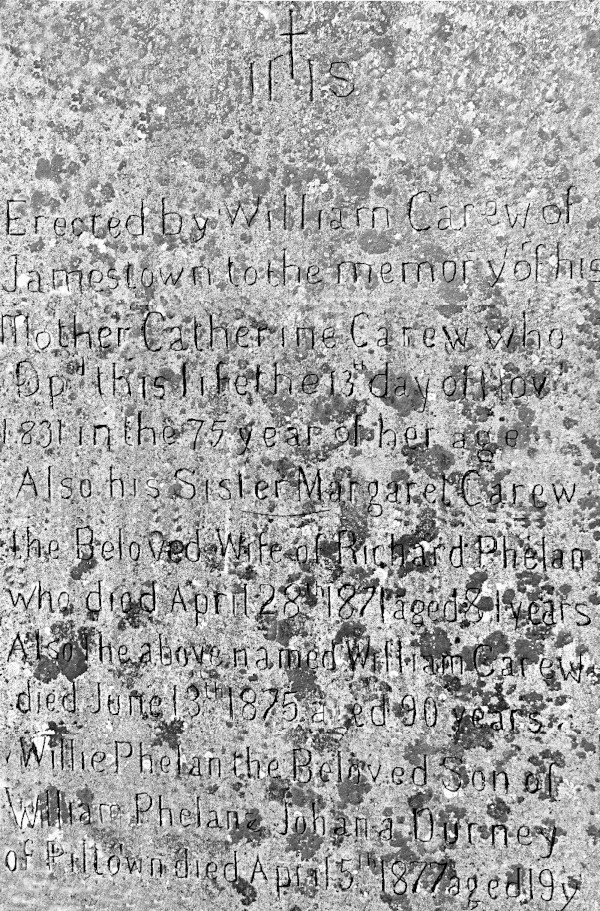 IHS
Erected by William Carew of
Jamestown to the memory of his
Mother Catherine Carew who
Dpd this life the 13th day of Novr
1831 in the 75 year of her age
Also his Sister Margaret Carew
the Beloved Wife of Richard Phelan
who died April 28th 1871 aged 81 years
Also the above named William Carew
died June 13th 1875 aged 90 years.
Willie Phelan the Beloved Son of
William Phelan & Johana Durney
of Piltown died April 5th 1877 aged 19y